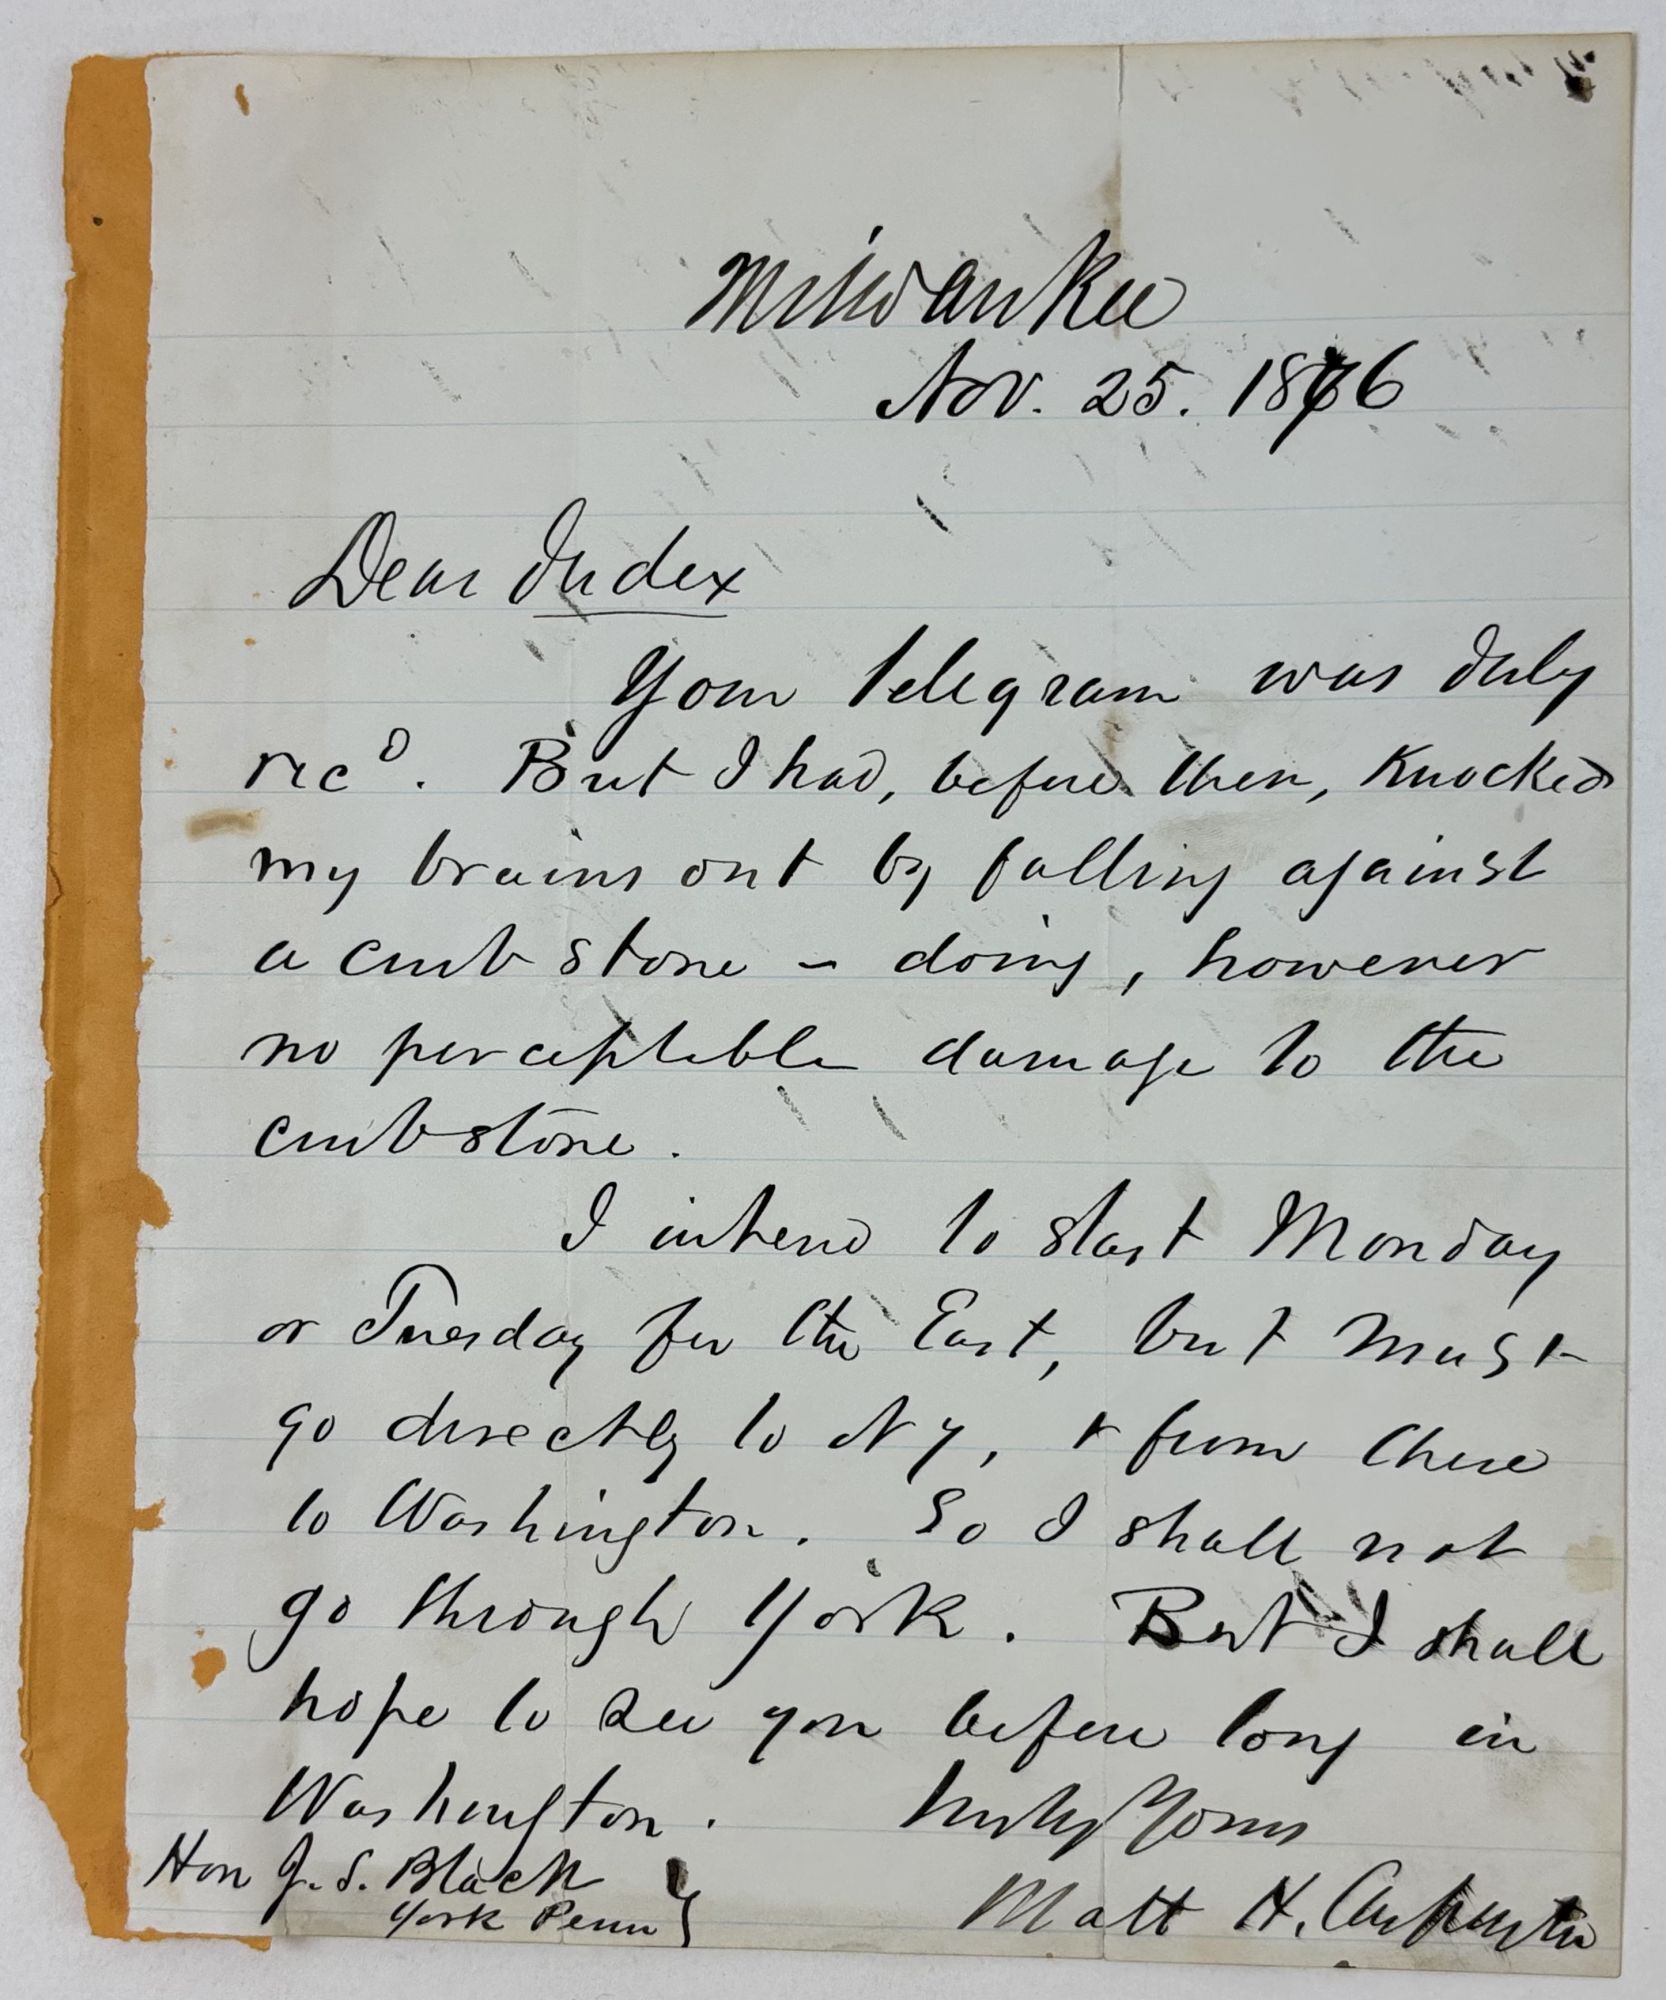 Milwaukee
Nov. 25. 1876
Dear Judex
Your telegram was duly
recd. But I had, before then, Knocked
my brains out by falling against
a curb stone - doing, however
no perceptible damage to the
curbstone.
I intend to start Monday
or Tuesday for the East, but must
go directly to NY, & from there
to Washington. So I shall not
go through York. But I shall
hope to see you before long in
Washington.
Truly Yours
Matt H. Carpenter
Hon J. S. Black
York Penn }